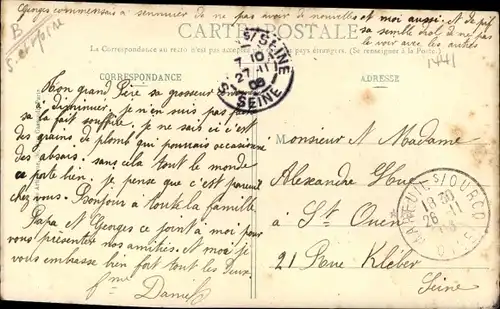 Georges commensais a sennuier de ne pas avoir de nouvelles et moi aussi. Et de pas
sa semble mal de ne pas
le voir avec les autres
B
CARTE POSTALE
La Correspondance au recto n'est pas acceptée par pays étrangers. (Se renseigner à la Poste.)
1441
CORRESPONDANCE
ADRESSE
S/SEINE
7 10
27 11
08
SEINE
Mon grand Père sa grosseur
a diminuer, je n'en suis pas
la fait souffrir, je ne sais si c'est
des grains de plomb qui pourais occasionne
des absais. sans cela tout le monde
ce porte bien. je pense que c'est pareil
chez vous. Bonjour à toute la famille
Papa et Georges ce joint à moi pour
vous présenter nos amitiés. et moi je
vous embrasse bien fort tout les Deux.
Daniel
Monsieur & Madame
Alexandre Hue
à St Ouen
21 Rue Kléber
Seine
MAREUIL S/OURCQ
18 30
26 11
OISE